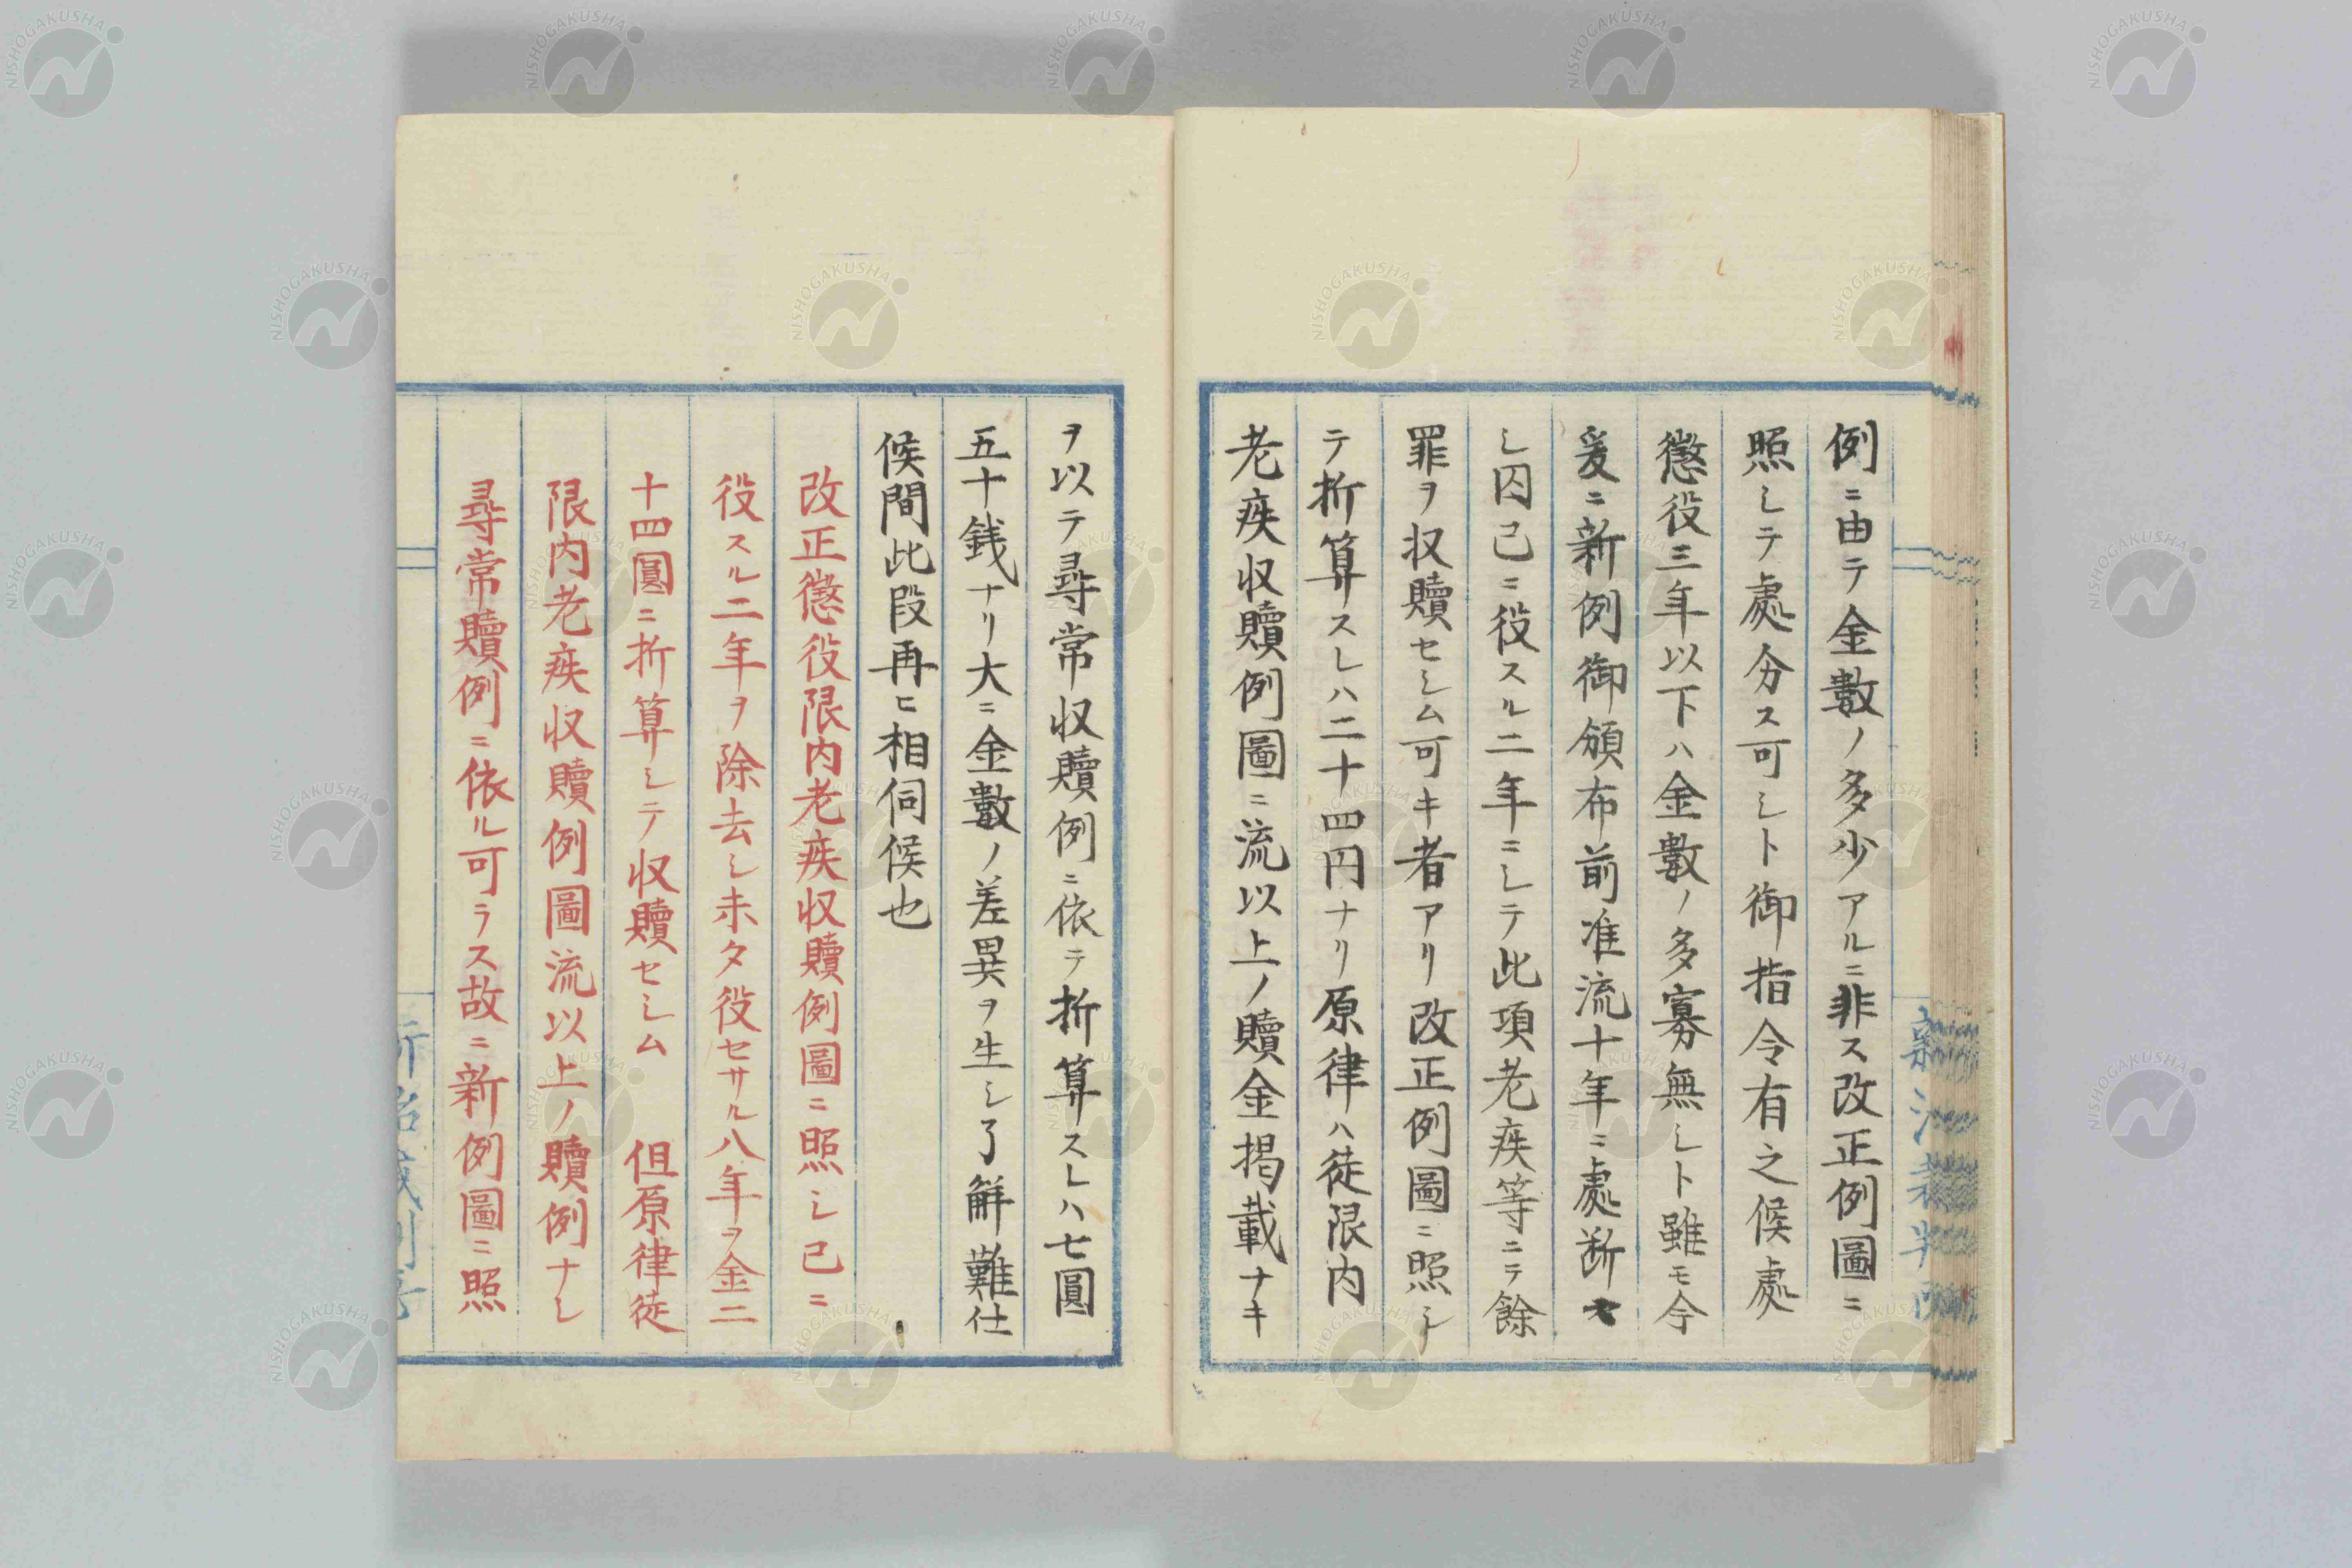 例ニ由テ金數ノ多少アルニ非ス改正例圖ニ
照シテ處分ス可シト御指令有之候處
懲役三年以下ハ金數ノ多寡無シト雖モ今
爰ニ新例御頒布前准流十年ニ處断セ
シ囚已ニ役スル二年ニシテ此項老疾等ニテ餘
罪ヲ収贖セシム可キ者アリ改正例圖ニ照シ
テ折算スレハ二十四円ナリ原律ハ徒限内
老疾収贖例圖ニ流以上ノ贖金掲載ナキ
ヲ以テ尋常収贖例ニ依テ折算スレハ七圓
五十銭ナリ大ニ金數ノ差異ヲ生シ了解難仕
候間此段再ヒ相伺候也
改正懲役限内老疾収贖例圖ニ照シ已ニ
役スル二年ヲ除去シ未タ役セサル八年ヲ金二
十四圓ニ折算シテ収贖セシム 但原律徒
限内老疾収贖例圖流以上ノ贖例ナシ
尋常贖例ニ依ル可ラス故ニ新例圖ニ照
NISHOGAKUSHA